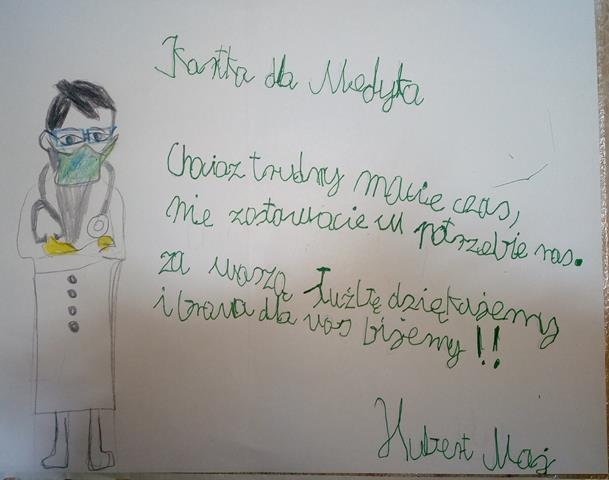 Kartka dla Medyka
Chociaż trudny macie czas,
nie zostawiacie w potrzebie nas.
za waszą służbę dziękujemy
i brawa dla was bijemy!!
Hubert Maj